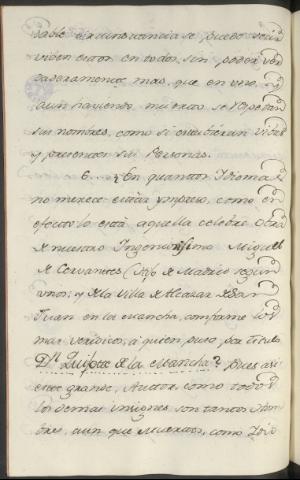 dable circunstancia se puede decir
viven estos en todos, sin poder ver
daderamente mas, que en uno, y
aun haviendo muerto se repiten
sus nombres, como si estubieran vivas
y presentes sus Personas.
6... ¿En quantos Idiomas
no merece estár impreso, como en
efecto lo está aquella celebre obra
de nuestro Ingeniosissimo Miguel
de Cervantes, (hijo de Madrid segun
unos; y de la Villa de Alcazar de San
Juan en la Mancha, conforme los
mas veridicos, a quien puso por titulo
Dn. Quijote de la Mancha? pues asi
este grande Author, como todos
los demas insignes, son tantos hom
bres, aun que muertos, como